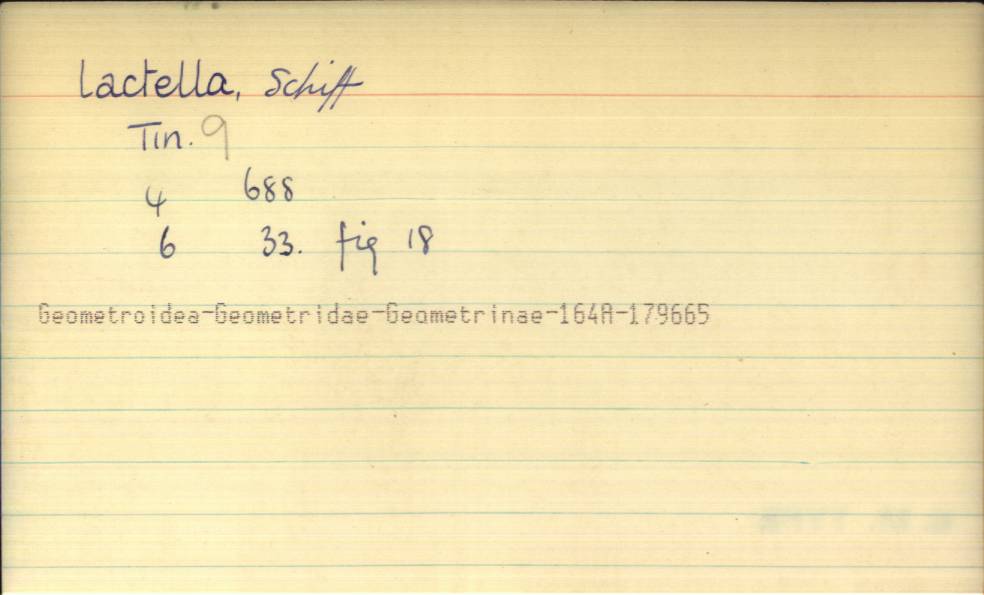 Lactella, Schiff
Tin. 9
4 688
6 33. fig 18
Geometroidea-Geometridae-Geometrinae-164A-179665